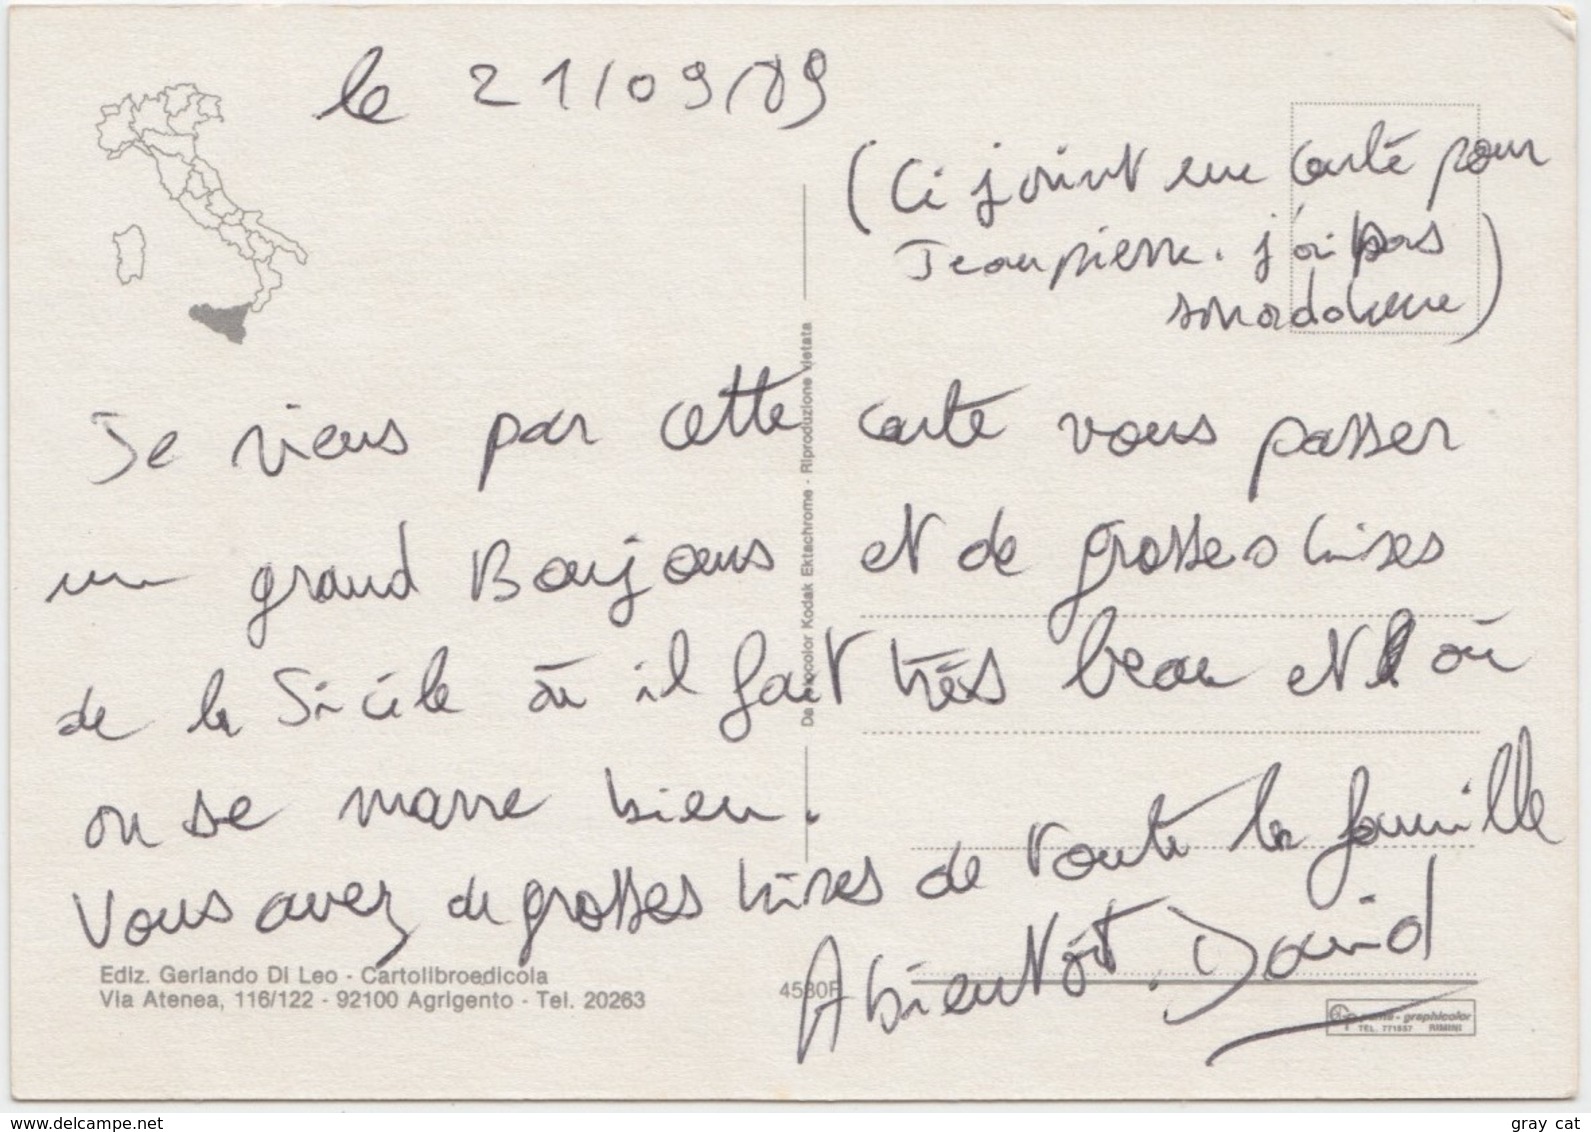 le 21/09/89
(Ci joint une carte pour
Jeanpierre. j'ai pas
son adresse)
Je viens par cette carte vous passer
un grand Bonjour et de grosses bises
de la Sicile où il fait très beau et où
on se marre bien.
Vous avez de grosses bises de toute la famille
Abientôt. David
Ediz. Gerlando Di Leo - Cartolibroedicola
Via Atenea, 116/122 - 92100 Agrigento - Tel. 20263
color Kodak Ektachrome - Riproduzione vietata
- graphicolor
TEL. 771857 RIMINI
www.delcampe.net
gray cat